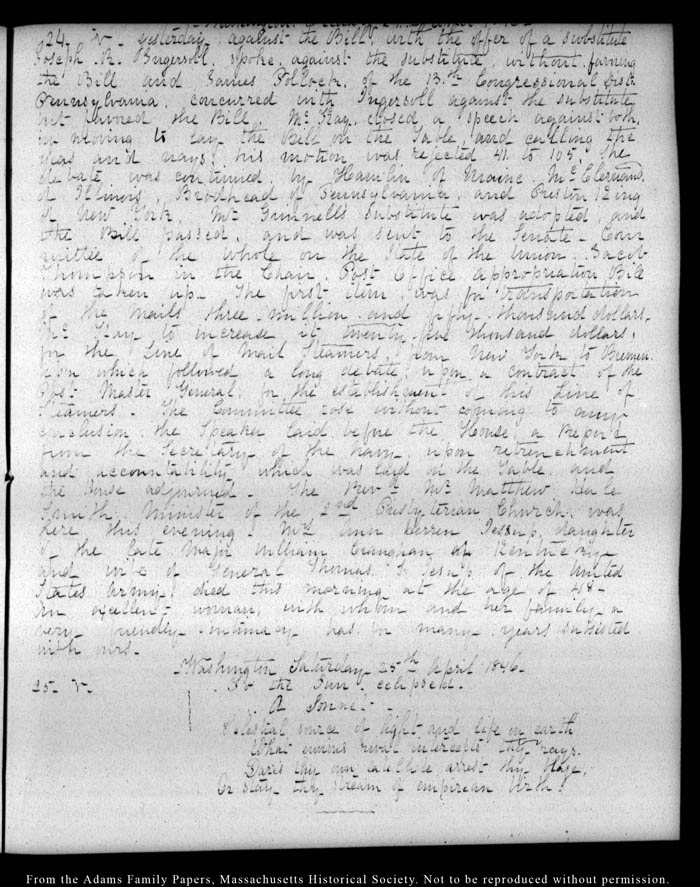 24. V. yesterday, against the Bill, with the offer of a substitute
Joseph R. Ingersoll, spoke, against the substitute, without favouring
the Bill and James Pollock, of the 13th Congressional District
Pennsylvania, concurred with Ingersoll against the substitute
but favored the Bill. Mr. Kay, closed a speech against both,
in moving to lay the Bill on the Table, and calling the
yeas and nays; his motion was rejected 41 to 105. The
debate was continued by Hamlin of Maine, McClernand,
of Illinois, Brodhead of Pennsylvania, and Preston King
of New York, Mr. Grinnell's substitute was adopted, and
the Bill passed, and was sent to the Senate. Com-
mittee of the whole on the State of the Union. Jacob
Thompson in the Chair. Post Office appropriation Bill
was taken up. The first item, was for transportation
of the mails three million and fifty thousand dollars.
Mc Kay to increase it twenty five thousand dollars,
for the Line of Mail Steamers, from New York to Bremen.
upon which followed a long debate, upon a contract of the
Post Master General, for the establishment of this Line of
Steamers. The Committee rose without coming to any
conclusion. the Speaker laid before the House, a Report
from the Secretary of the Navy, upon retrenchment
and accountability, which was laid on the Table, and
the House adjourned. The Revd. Mr. Matthew Hale
Smith, Minister of the 2nd Presbyterian Church, was
here this evening. Mrs. Ann Jessup, daughter
of the late Major William Croughan of Kentucky
and wife of General Thomas S. Jesup of the United
States Army, died this morning at the age of 48
An excellent woman, with whom and her family a
very friendly intimacy has for many years subsisted
with ours.
Washington Saturday 25th April 1846.
25. V. To the Sun eclipsed.
A Sonnet.
Celestial source of light and life on earth
What envious rival intercepts thy rays
Dares thy own satellite arrest thy blaze,
Or stay thy stream of empirean birth?
From the Adams Family Papers, Massachusetts Historical Society. Not to be reproduced without permission.